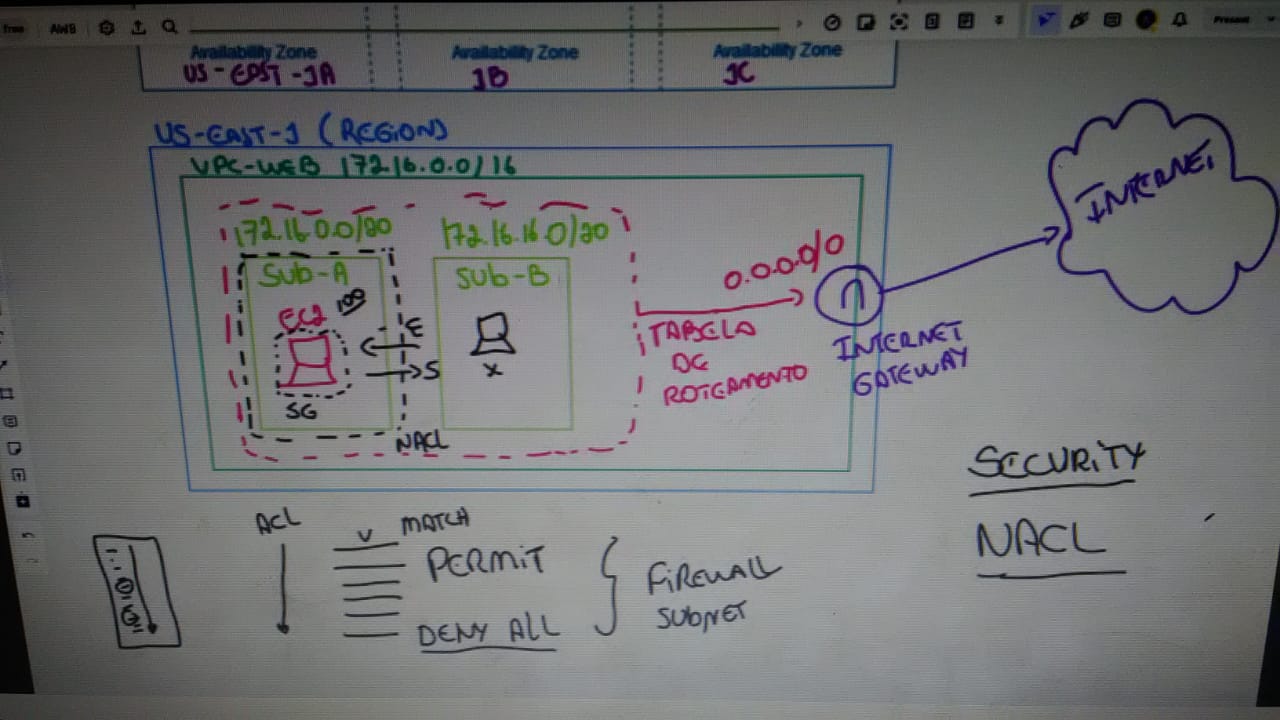 free AWS
Present
Availability Zone Availability Zone Availability Zone
US-EAST-1A 1B 1C
US-EAST-1 (REGION)
VPC-WEB 172.16.0.0/16
172.16.0.0/20 172.16.16.0/20
SUB-A SUB-B
EC2
E
S
SG
X
NACL
0.0.0.0/0
TABELA
DE
ROTEAMENTO
INTERNET
GATEWAY
INTERNET
SECURITY
NACL
ACL
V MATCH
PERMIT
DENY ALL
FIREWALL
SUBNET